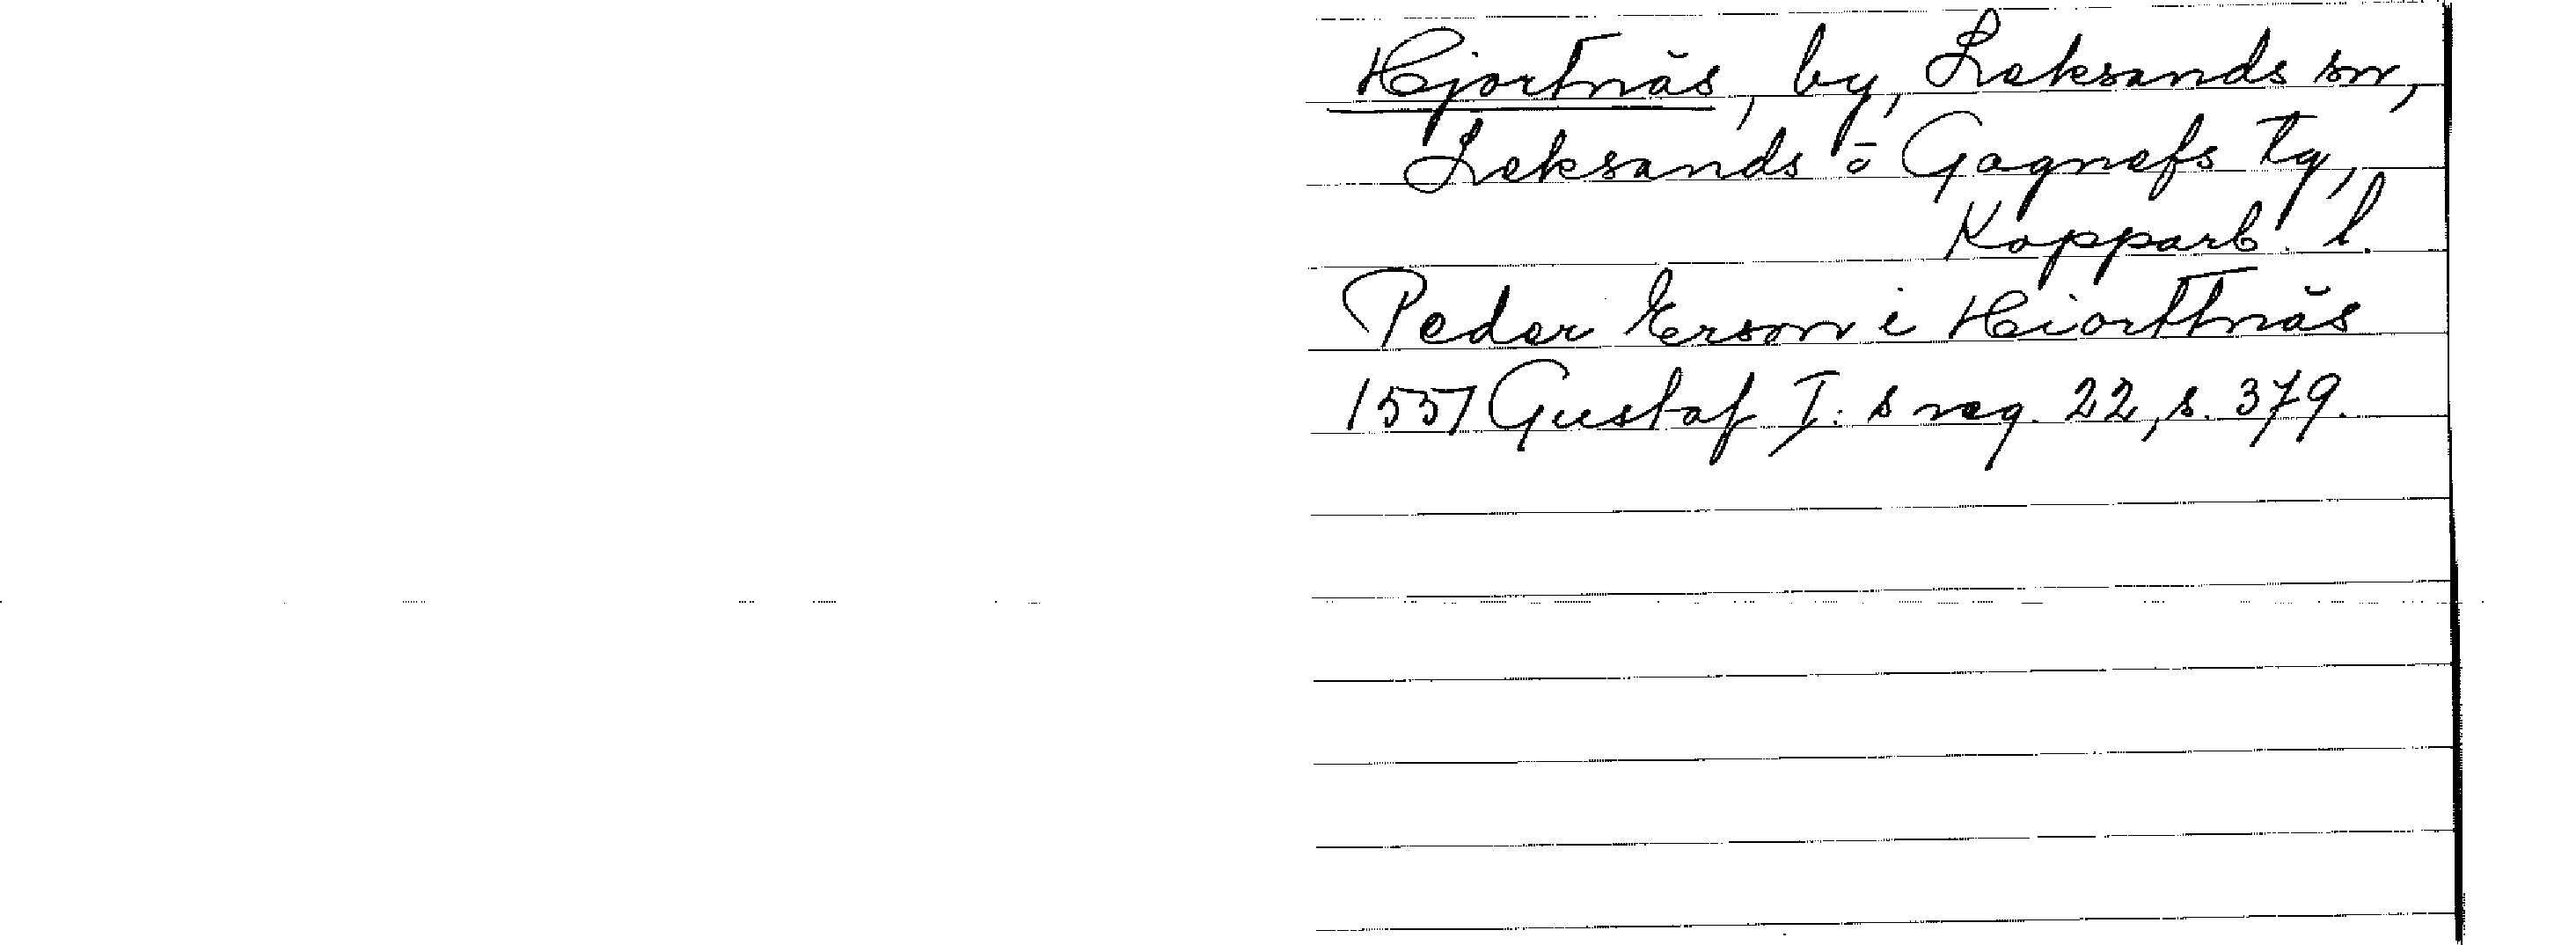 Hjortnäs, by, Leksands sn,
Leksands o Gagnefs tg,
Kopparb. l.
Peder Erson i Hiorttnäs
1551 Gustaf I:s reg. 22, s. 379.